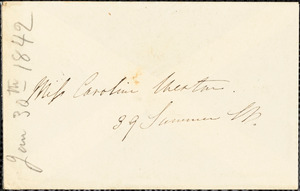 Miss Caroline Weston.
39 Summer St.
Jan 30th 1842